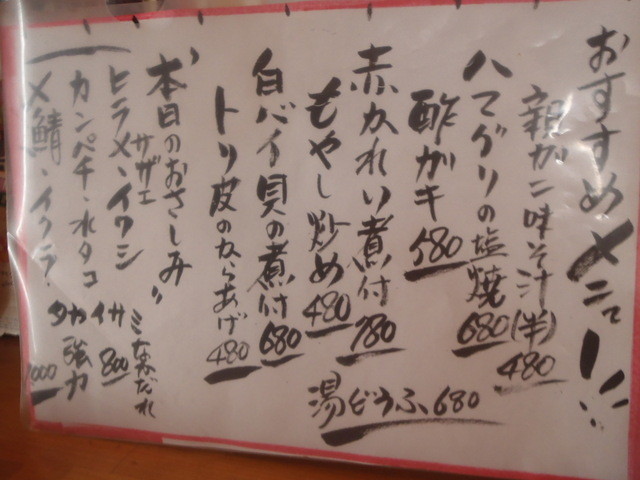 おすすめメニュー!!
親ガニ味そ汁(半) 480
ハマグリの塩焼 680
酢ガキ 580
赤カれい煮付 780
もやし炒め 480
湯どうふ 680
白バイ貝の煮付 680
トリ皮のからあげ 480
"本日のおさしみ"
サザエ
ヒラメ・イワシ
カンパチ・水タコ
〆鯖・イクラ・
イサ 800
1000